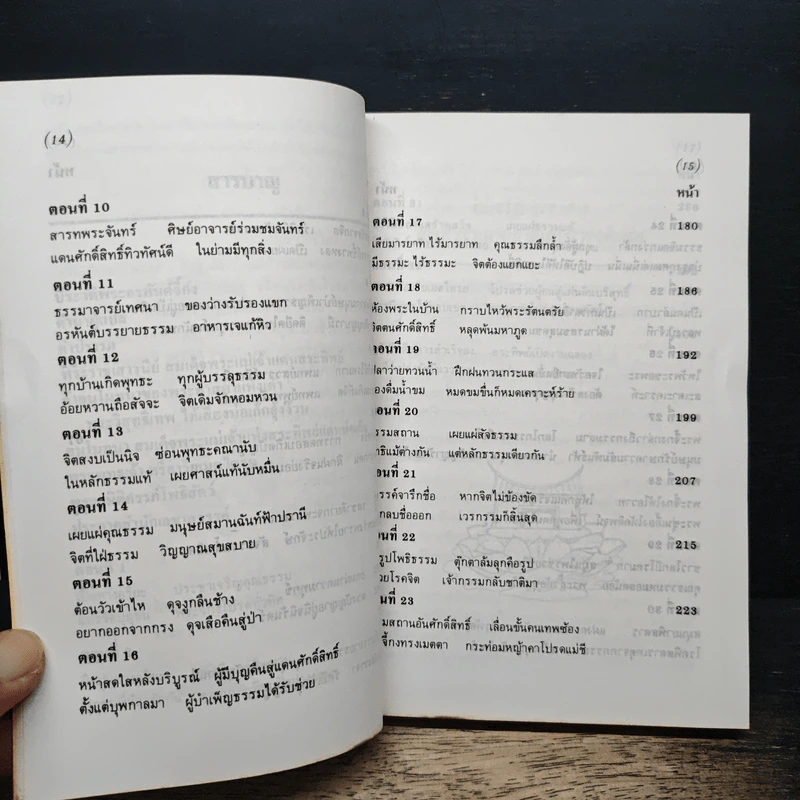 (14)
ตอนที่ 10
สารทพระจันทร์ ศิษย์อาจารย์ร่วมชมจันทร์
แดนศักดิ์สิทธิ์ทิวทัศน์ดี ในย่ามมีทุกสิ่ง
ตอนที่ 11
ธรรมาจารย์เทศนา ของว่างรับรองแขก
อรหันต์บรรยายธรรม อาหารเจแก้หิว
ตอนที่ 12
ทุกบ้านเกิดพุทธะ ทุกผู้บรรลุธรรม
อ้อยหวานถือสัจจะ จิตเดิมจักหอมหวน
ตอนที่ 13
จิตสงบเป็นนิจ ซ่อนพุทธะคณานับ
ในหลักธรรมแท้ เผยศาสน์แท้นับหมื่น
ตอนที่ 14
เผยแผ่คุณธรรม มนุษย์สมานฉันท์ฟ้าปรานี
จิตที่ใฝ่ธรรม วิญญาณสุขสบาย
ตอนที่ 15
ต้อนวัวเข้าไห ดุจงูกลืนช้าง
อยากออกจากกรง ดุจเสือคืนสู่ป่า
ตอนที่ 16
หน้าสดใสหลังบริบูรณ์ ผู้มีบุญคืนสู่แดนศักดิ์สิทธิ์
ตั้งแต่บุพกาลมา ผู้บำเพ็ญธรรมได้รับช่วย
(15)
หน้า
ตอนที่ 17 180
เสียมารยาท ไร้มารยาท คุณธรรมลึกล้ำ
มีธรรมะ ไร้ธรรมะ จิตต้องแยกแยะ
ตอนที่ 18 186
ห้องพระในบ้าน กราบไหว้พระรัตนตรัย
จิตตนศักดิ์สิทธิ์ หลุดพ้นมหาภูต
ตอนที่ 19 192
ปลาว่ายทวนน้ำ ฝึกฝนทวนกระแส
ต้องดื่มน้ำขม หมดขมขื่นก็หมดเคราะห์ร้าย
ตอนที่ 20 199
ธรรมสถาน เผยแผ่สัจธรรม
แม้ต่างกัน แต่หลักธรรมเดียวกัน
ตอนที่ 21 207
สวรรค์จารึกชื่อ หากจิตไม่ข้องขัด
ลบชื่อออก เวรกรรมก็สิ้นสุด
ตอนที่ 22 215
รูปโพธิธรรม ตุ๊กตาล้มลุกคือรูป
ป่วยโรคจิต เจ้ากรรมกลับชาติมา
ตอนที่ 23 223
สถานอันศักดิ์สิทธิ์ เลื่อนขั้นคนเทพซ้อง
จี้กงทรงเมตตา กระท่อมหญ้าคาโปรดแม่ชี